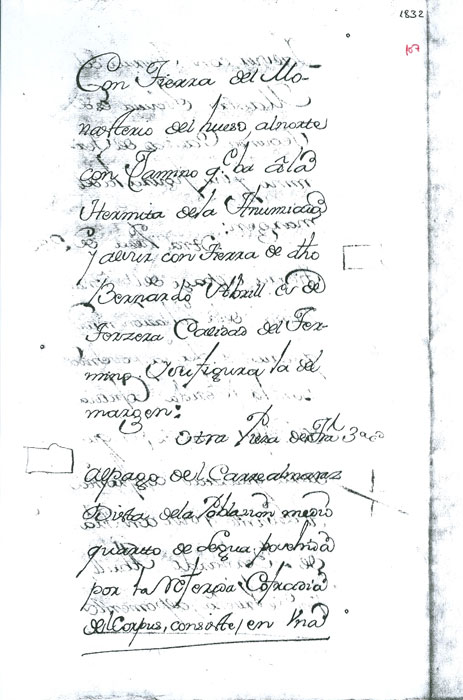 1832
107
Con Tierra del Mo-
nasterio del hueso, al norte
con Camino q.e ba â la
Hermita de la Humildad
y al sur con Tierra de dho
Bernardo Abrill. Es de
Terzera Calidad del Ter-
mino. Y su figura la del
margen:
Otra Pieza de Tra 3a
al pago del Carrealmarez
Dista de la Poblazion medio
quarto de Legua, posehida
por la Referida Cofradia
del Corpus, consiste, en Una